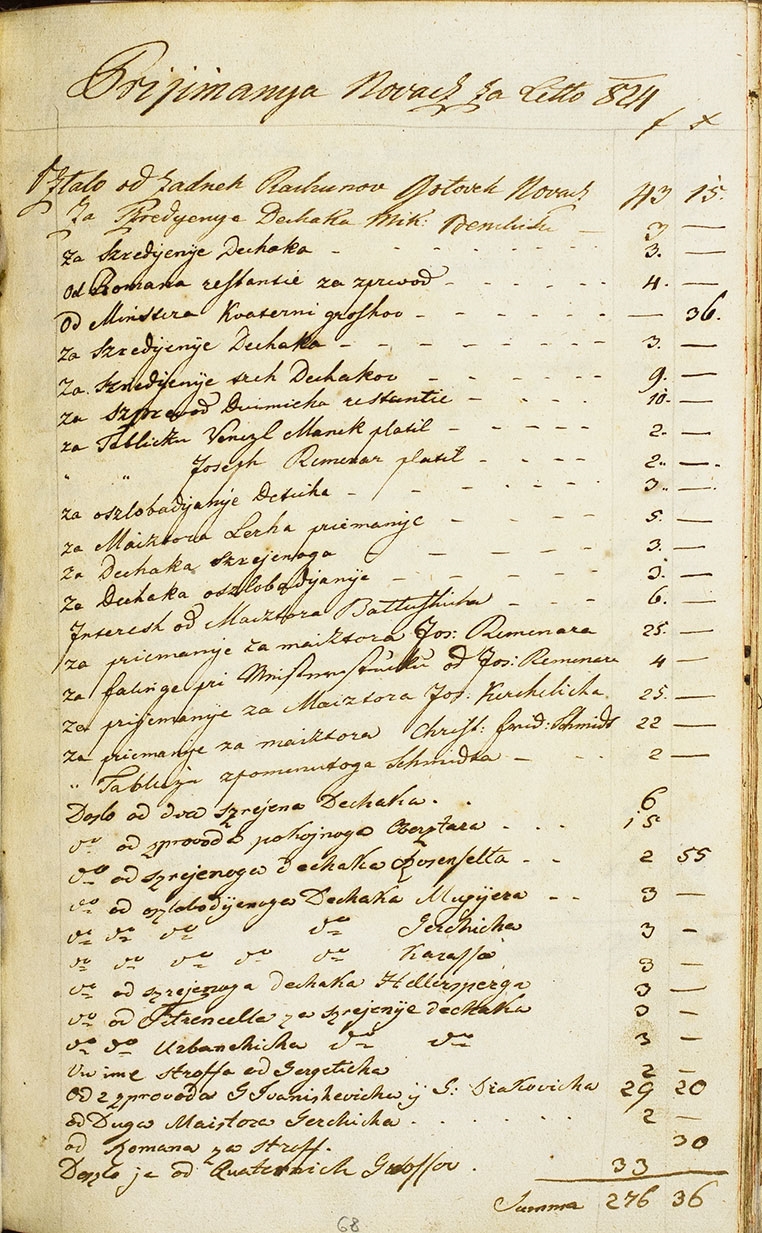 Prijimanya Novacz za Letto 824
f x
Osztalo od zadneh Rachunov Gotoveh Novacz 43 15.
Za Szredyenye Dechaka Mik: — 3 —
za szredjenÿe Dechaka - - - - - - 3. —
od Romana restantie za zprevod - - - - - - 4. —
od Minstera Kvaterni groshov - - - - - - — 36.
za szredjenÿe Dechaka - - - - - - 3. —
za szredjenÿe treh Dechakov - - - - 9. —
za szprevod Dvimicha restantie - - - - 10. —
za Tablichu Venczl Manek platil - - - - 2. —
" " Joseph Remenar platil - - - - 2. —.
za oszlobadjanÿe Deticha - - - - 3. —
za Maisztora Lerha priemanje - - - - 5. —
za Dechaka szrejenoga - - - - 3. —
za Dechaka oszlobadjanÿe - - - - 3. —
Interesh od Maisztora Battushicha - - - 6. —
za priemanje za maisztora Jos: Remenara 25. —
za falinge pri od Jos: Remenara 4 —
za prijemanÿe za Maisztora Jos: Kerchelicha. 25. —
za priemanje za maisztora Christ: frid: Schmidt 22 —
" Tablicza zpomenutoga Schmidta - - - 2 —
Doszlo od dva szrejena Dechaka. . . 6
do od zprovoda pokojnoga Oberztara - - - 15
do od szrejenoga dechaka Rosenfelta - - 2 55
do od oszlobodjenoga Dechaka Mugÿera - - 3 —
do do do do Gerchicha 3 -
do do do do do Karasse 3 -
do od szrejenoga dechaka Hellersperga 3 —
do od Strencella za szrejenÿe dechaka 3 -
do do Urbanchicha do do 3 -
Vu ime stroffa od Gergeticha 2 -
Od 2 zprovoda G Ivanishevicha ÿ G: Diakovicha 29 20
od Duga Maistora Gerchicha . . . . . . 2 —
od Romana za stroff. . 30
Doszlo je od Quaternich Groshov . 33
Summa 276 36
68